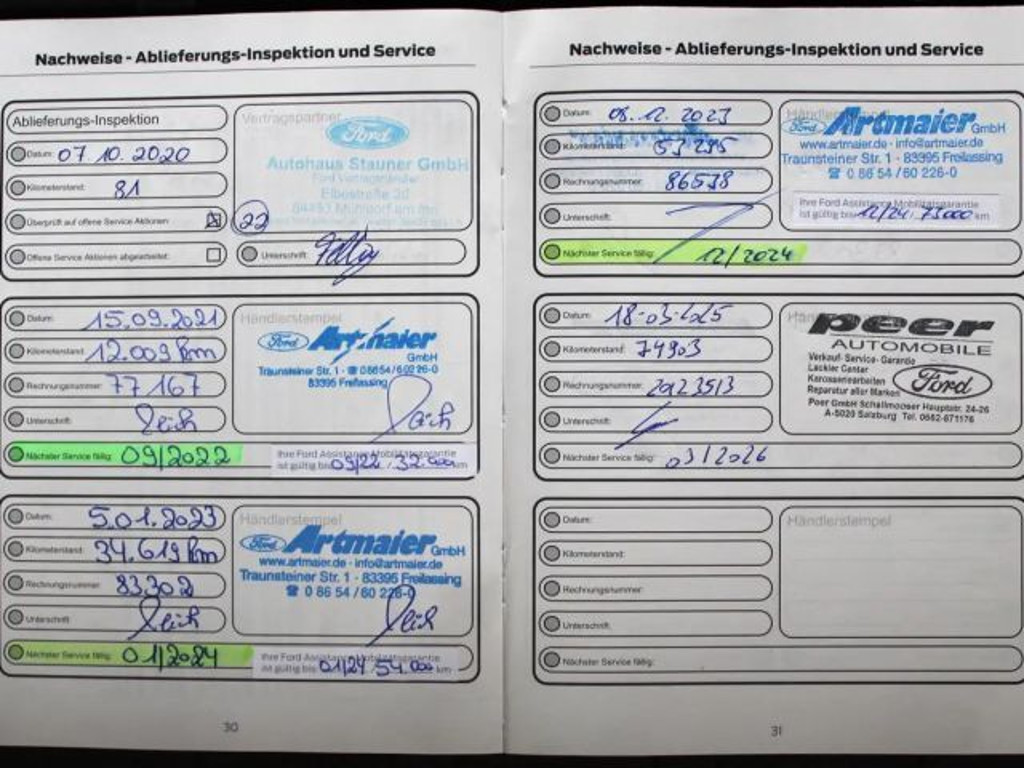 Nachweise - Ablieferungs-Inspektion und Service
Ablieferungs-Inspektion
Datum: 07.10.2020
Kilometerstand: 81
Überprüft auf offene Service Aktionen:
Offene Service Aktionen abgearbeitet:
Vertragspartner
Ford
Autohaus Stauner GmbH
Ford Vertragshändler
Elbestraße 20
84453 Mühldorf am Inn
22
Unterschrift:
Datum: 15.09.2021
Kilometerstand: 12.009 km
Rechnungsnummer: 77167
Unterschrift:
Nächster Service fällig: 09/2022
Händlerstempel
Ford Artmaier
GmbH
Traunsteiner Str. 1 · ☎ 08654/60226-0
83395 Freilassing
Ihre Ford Assistance Mobilitätsgarantie
ist gültig bis 09/22 / 32.000 km
Datum: 5.01.2023
Kilometerstand: 34.619 km
Rechnungsnummer: 83302
Unterschrift:
Nächster Service fällig: 01/2024
Händlerstempel
Ford Artmaier GmbH
www.artmaier.de · info@artmaier.de
Traunsteiner Str. 1 · 83395 Freilassing
☎ 0 86 54 / 60 226-0
Ihre Ford Assistance Mobilitätsgarantie
ist gültig bis 01/24 54.000 km
30
Nachweise - Ablieferungs-Inspektion und Service
Datum: 08.12.2023
Kilometerstand: 53295
Rechnungsnummer: 86538
Unterschrift:
Nächster Service fällig: 12/2024
Händlerstempel
Ford Artmaier GmbH
www.artmaier.de · info@artmaier.de
Traunsteiner Str. 1 · 83395 Freilassing
☎ 0 86 54 / 60 226-0
Ihre Ford Assistance Mobilitätsgarantie
ist gültig bis 12/24 73000 km
Datum: 18-03-2025
Kilometerstand: 74903
Rechnungsnummer: 20123513
Unterschrift:
Nächster Service fällig: 03/2026
peer
AUTOMOBILE
Verkauf- Service- Garantie
Lackier Center
Karosseriearbeiten
Reparatur aller Marken
Ford
Peer GmbH Schallmooser Hauptstr. 24-26
A-5020 Salzburg Tel. 0662-871176
Datum:
Kilometerstand:
Rechnungsnummer:
Unterschrift:
Nächster Service fällig:
Händlerstempel
31